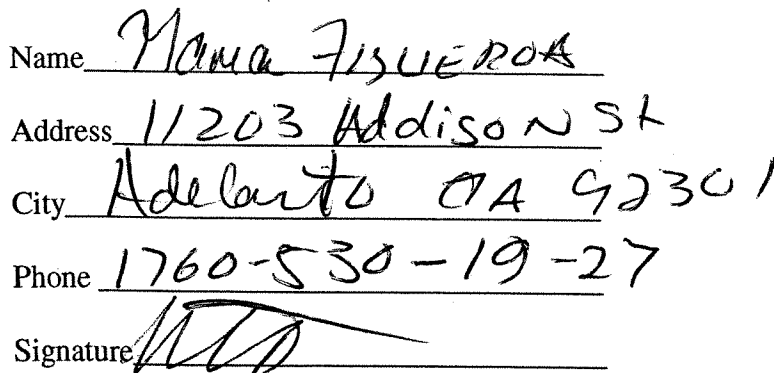 Name Maria FIGUEROA
Address 11203 Addison St
City Adelanto CA 92301
Phone 1760-530-19-27
Signature